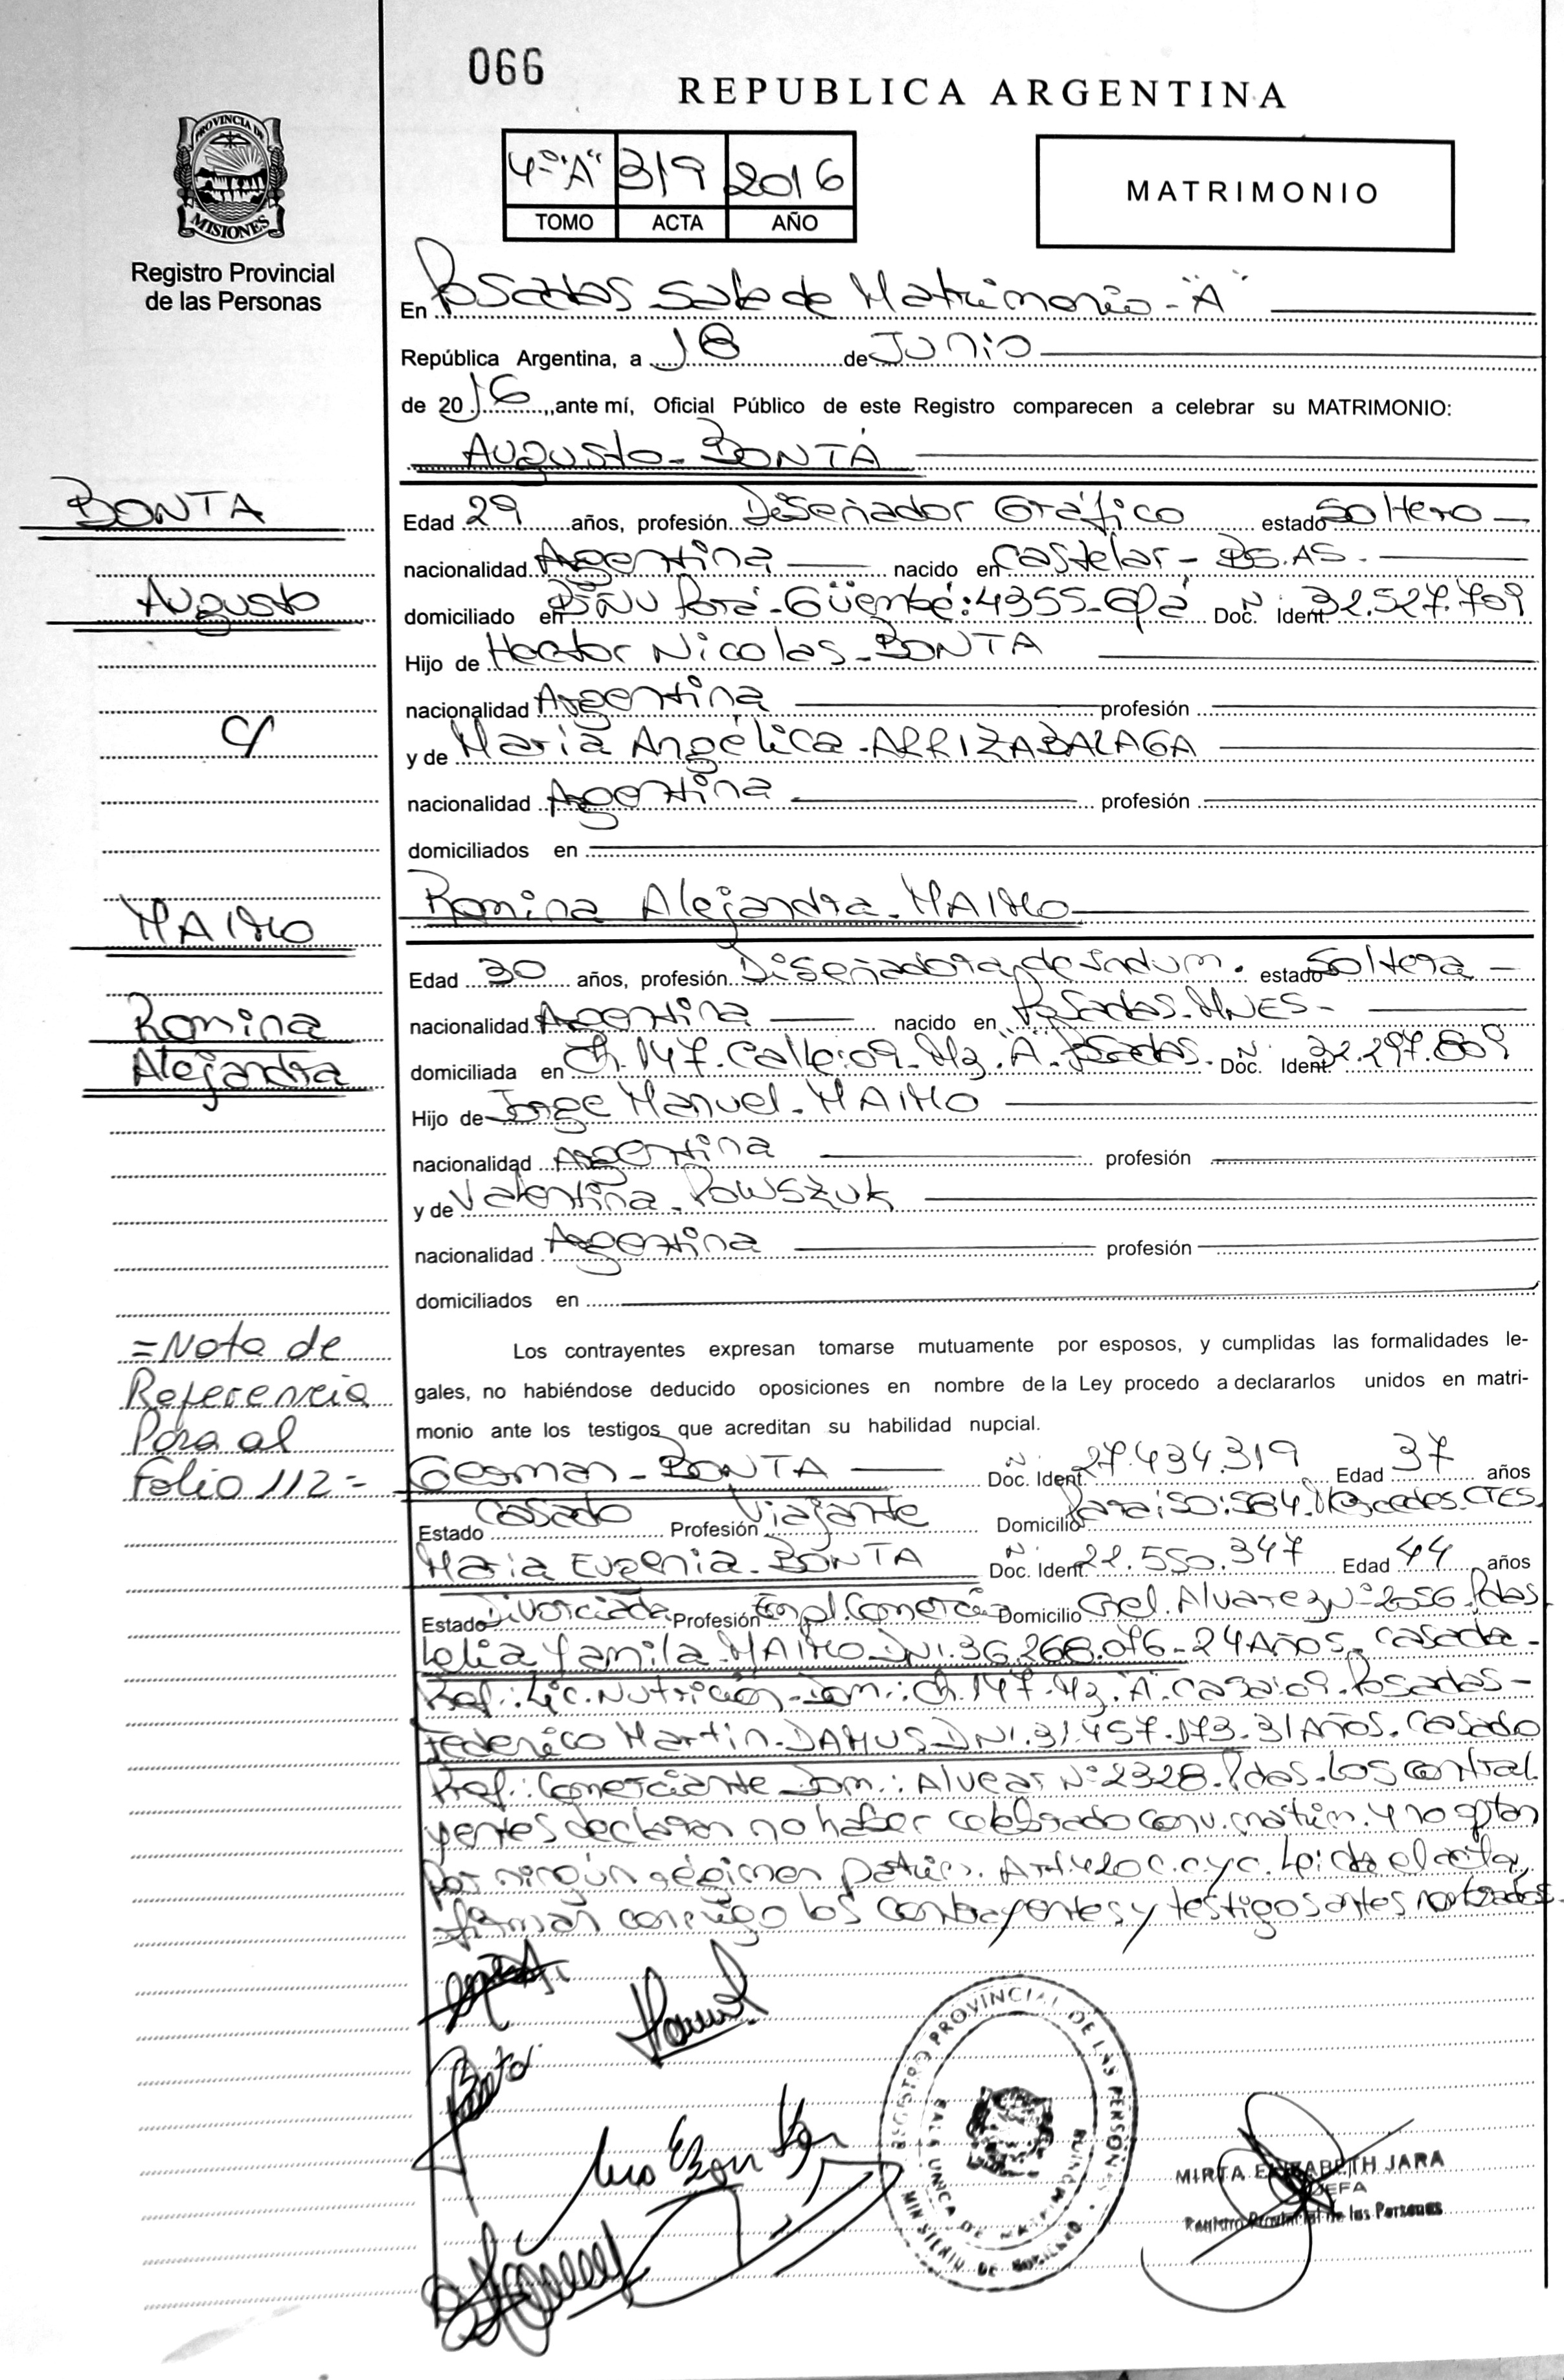 066
REPUBLICA ARGENTINA
PROVINCIA DE
MISIONES
Registro Provincial
de las Personas
4º "A" 319 2016
TOMO ACTA AÑO
MATRIMONIO
En Posadas Sala de Matrimonio - "A"
República Argentina, a 18 de Junio
de 2016, ante mí, Oficial Público de este Registro comparecen a celebrar su MATRIMONIO:
Augusto - BONTÁ
BONTA
Edad 29 años, profesión Diseñador Gráfico estado Soltero -
nacionalidad Argentina nacido en Castelar - BS.AS.
Augusto
domiciliado en Güembé: 4355 - Doc. Ident. Nº 32.527.709
Hijo de Hector Nicolas - BONTA
nacionalidad Argentina profesión
C/
y de Maria Angélica - ARRIZABALAGA
nacionalidad Argentina profesión
domiciliados en
Romina Alejandra - MAIMO
MAIMO
Edad 30 años, profesión Diseñadora de Indum. estado Soltera -
Romina
nacionalidad Argentina nacido en Posadas - MNES -
Alejandra
domiciliada en Ch. 147. Calle: 09 - Mz. "A". Posadas. Doc. Ident. Nº 32.297.809
Hijo de Jorge Manuel - MAIMO
nacionalidad Argentina profesión
y de Valentina - POWSZUK
nacionalidad Argentina profesión
domiciliados en
=Nota de
Referencia
Pasa al
Folio 112=
Los contrayentes expresan tomarse mutuamente por esposos, y cumplidas las formalidades le-
gales, no habiéndose deducido oposiciones en nombre de la Ley procedo a declararlos unidos en matri-
monio ante los testigos que acreditan su habilidad nupcial.
German - BONTA Doc. Ident. Nº 27.434.319 Edad 37 años
Estado Casado Profesión Viajante Domicilio Paraiso: 584. Mercedes. CTES.
Maria Eugenia - BONTA Doc. Ident. Nº 22.550.347 Edad 44 años
Estado Divorciada Profesión Empl. Comercio Domicilio Gral. Alvarez Nº 2056. Pdas.
Lelia Yamila - MAIMO - DNI. 36.268.076 - 24 Años. Casada -
Prof.: Lic. Nutrición - Dom.: Ch. 147. Mz. "A". Casa: 09. Posadas -
Federico Martin - DAMUS - DNI. 31.457.173 - 31 Años. Casado
Prof.: Comerciante - Dom.: Alvear Nº 2328. Pdas. Los contra
yentes declaran no haber celebrado conv. matrim. y no optan
por ningún régimen patrim. Art. 420 C.C.y C. Leida el acta,
firman conmigo los contrayentes y testigos antes nombrados.
REGISTRO PROVINCIAL DE LAS PERSONAS
SALA UNICA DE MATRIMONIO
MINISTERIO DE GOBIERNO
MIRTA ELIZABETH JARA
JEFA
Registro Provincial de las Personas